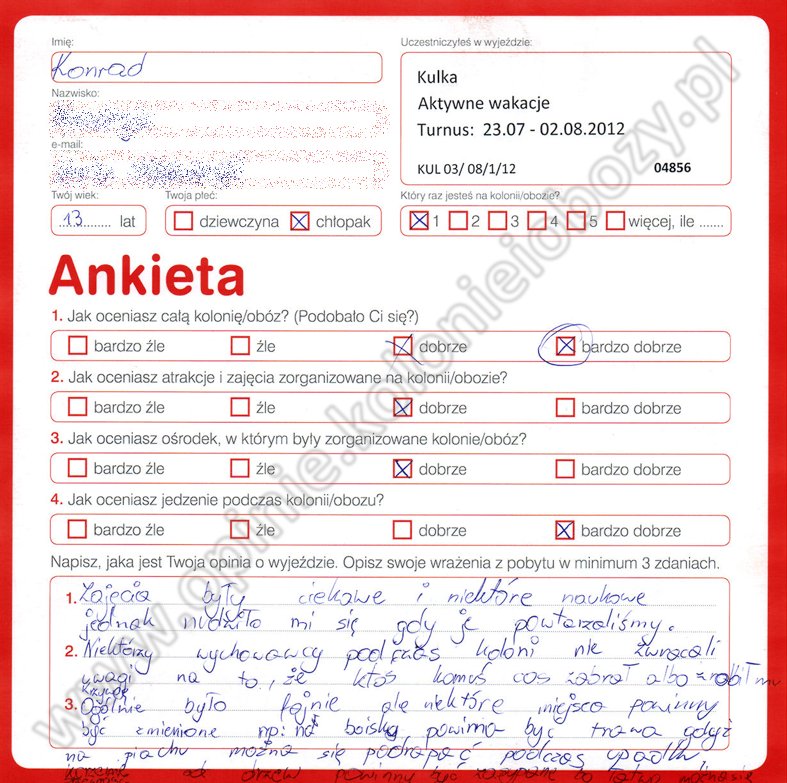 Imię:
Konrad
Nazwisko:
e-mail:
Twój wiek:
13 lat
Twoja płeć:
dziewczyna chłopak
Uczestniczyłeś w wyjeździe:
Kulka
Aktywne wakacje
Turnus: 23.07 - 02.08.2012
KUL 03/ 08/1/12 04856
Który raz jesteś na kolonii/obozie?
1 2 3 4 5 więcej, ile .......
Ankieta
1. Jak oceniasz całą kolonię/obóz? (Podobało Ci się?)
bardzo źle źle dobrze bardzo dobrze
2. Jak oceniasz atrakcje i zajęcia zorganizowane na kolonii/obozie?
bardzo źle źle dobrze bardzo dobrze
3. Jak oceniasz ośrodek, w którym były zorganizowane kolonie/obóz?
bardzo źle źle dobrze bardzo dobrze
4. Jak oceniasz jedzenie podczas kolonii/obozu?
bardzo źle źle dobrze bardzo dobrze
Napisz, jaka jest Twoja opinia o wyjeździe. Opisz swoje wrażenia z pobytu w minimum 3 zdaniach.
1. Zajęcia były ciekawe i niektóre naukowe
jednak nudziło mi się gdy je powtarzaliśmy.
2. Niektórzy wychowawcy podczas koloni nie zwracali
uwagi na to, że ktoś komuś coś zabrał albo zrobił mu
krzywdę.
3. Ogólnie było fajnie ale niektóre miejsca powinny
być zmienione np: na boisku powinna być trawa gdyż
na piachu można się podrapać podczas upadku,
korzenie od drzew powinny być zasypane bo łatwo można się
www.opinie.kolonieiobozy.pl